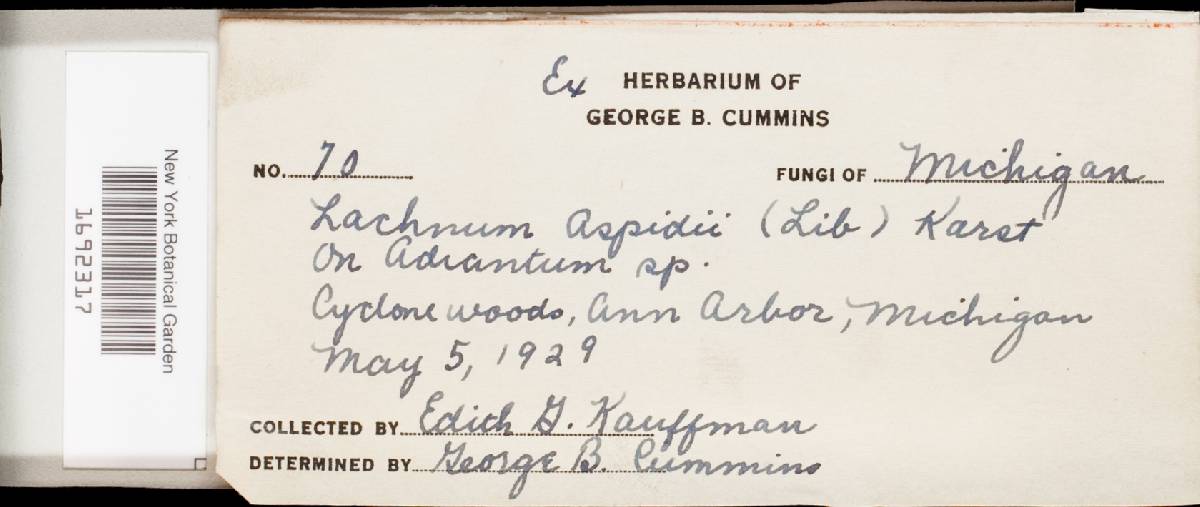 Ex HERBARIUM OF
GEORGE B. CUMMINS
NO. 70 FUNGI OF Michigan
Lachnum Aspidii (Lib) Karst
On Adiantum sp.
Cyclone woods, Ann Arbor, Michigan
May 5, 1929
COLLECTED BY Edith G. Kauffman
DETERMINED BY George B. Cummins
New York Botanical Garden
1692317